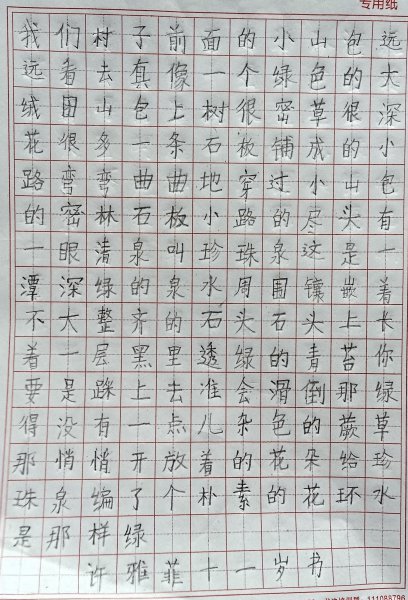 专用纸
我们村子前面的小山包远
远看去真像一个绿色的大
绒团山包上树很密草很深
花很多一条石板铺成的小
路弯弯曲曲地穿过小山包
的密林石板小路的尽头有
一眼清泉叫珍珠泉这是一
潭深绿的泉水周围镶嵌着
不大整齐的石头石头上长
着一层黑里透绿的青苔你
要是踩上去准会滑倒那绿
得没有一点儿杂色的蕨草
那悄悄开放着的花朵给珍
珠泉编了个朴素的花环水
是那样绿
许雅菲十一岁书